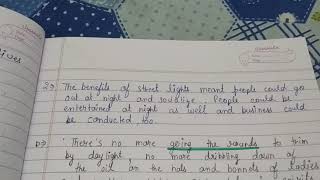 ives
2→ The benefits of street lights meant people could go
out at night and socialize. People could be
entertained at night as well and business could
be conducted, too.
D→ "There's no more going the rounds to trim
by daylight, no more dribbling down of
the oil on the hats and bonnets of ladies